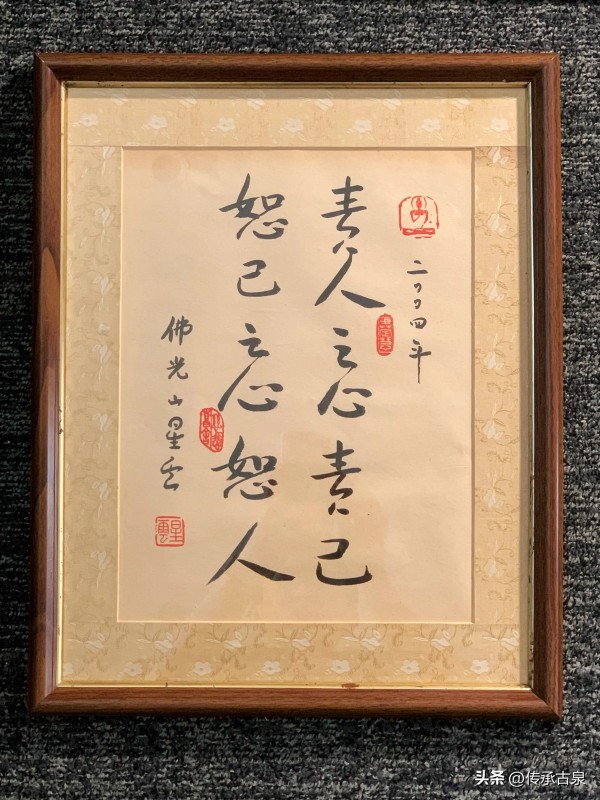 二〇〇四年
責人之心責己
恕己之心恕人
佛光山星雲
星雲
头条 @传承古泉